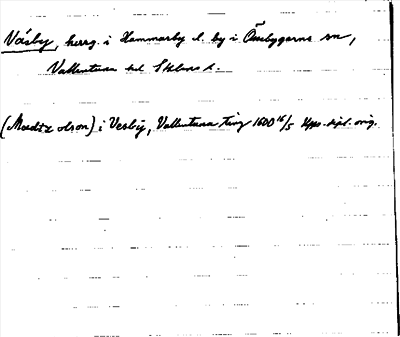 Väsby, herrg. i Hammarby l. by i Össebygarns sn,
Vallentuna hd Sthlms l.
(Madz olson) i Vesbÿ, Vallentuna ting 1600 16/5 Upps. dipl. orig.